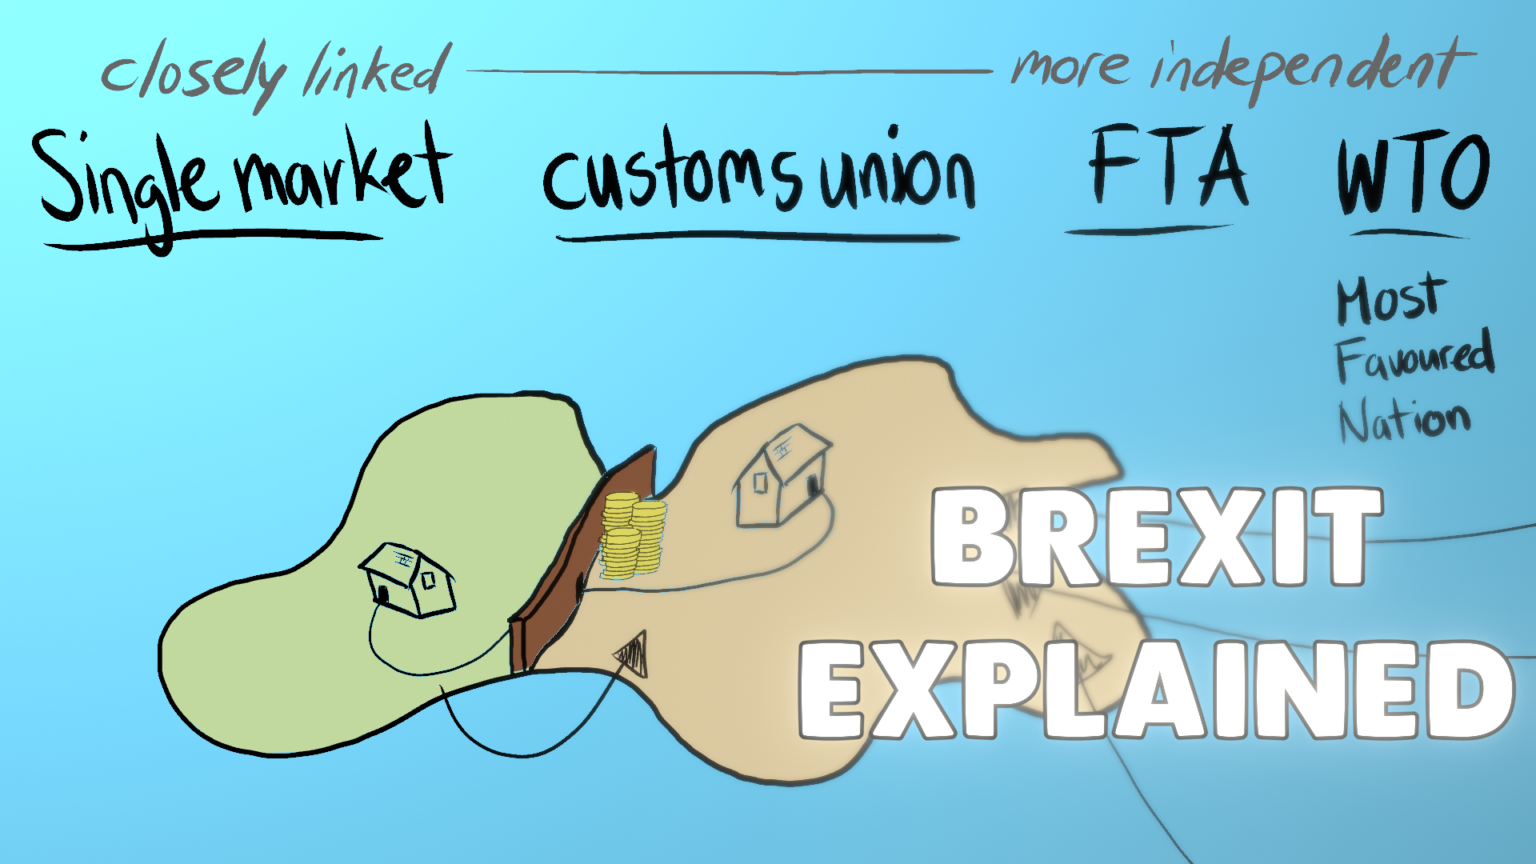 closely linked more independent
Single market customs union FTA WTO
Most
Favoured
Nation
BREXIT
EXPLAINED